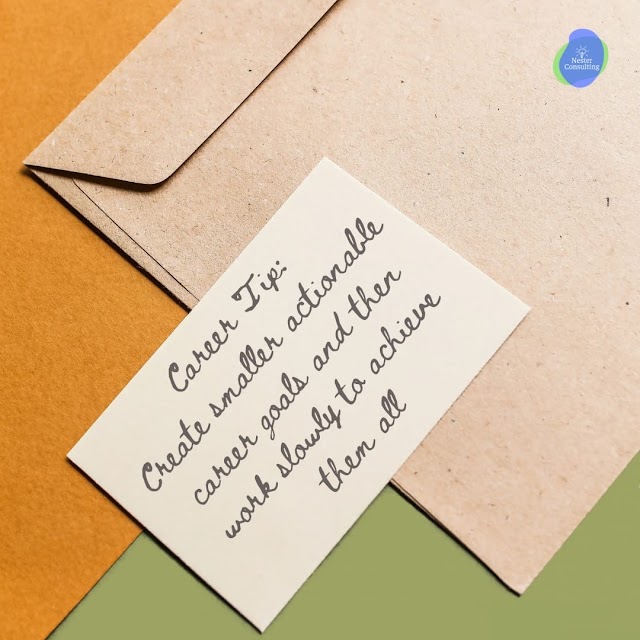 Nester
Consulting
Career Tip:
Create smaller actionable
career goals and then
work slowly to achieve
them all